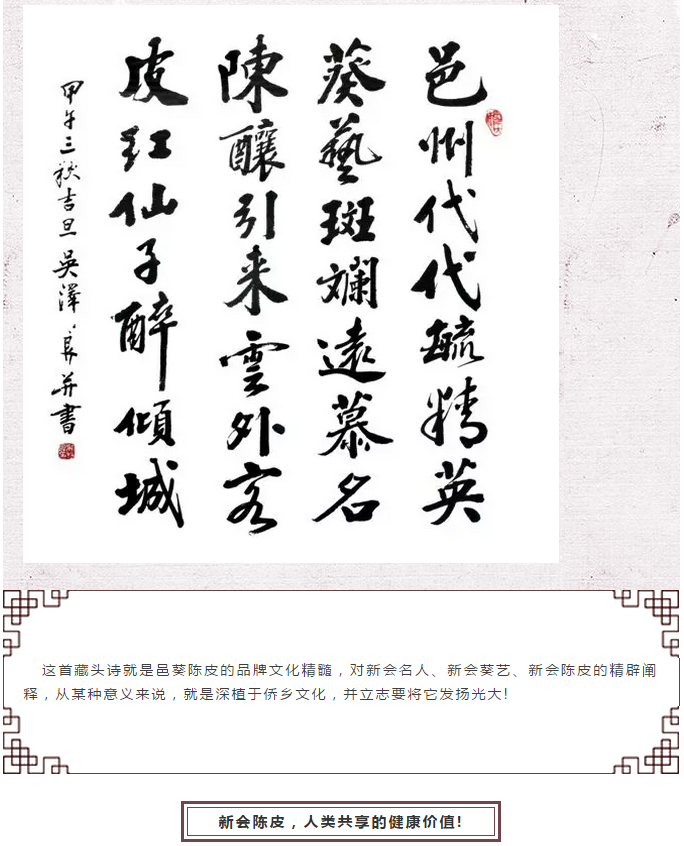 邑州代代毓精英
葵藝斑斕遠慕名
陳釀引来雲外客
皮紅仙子醉傾城
甲午三秋吉旦 吳澤良并書
这首藏头诗就是邑葵陈皮的品牌文化精髓，对新会名人、新会葵艺、新会陈皮的精辟阐
释，从某种意义来说，就是深植于侨乡文化，并立志要将它发扬光大！
新会陈皮，人类共享的健康价值！